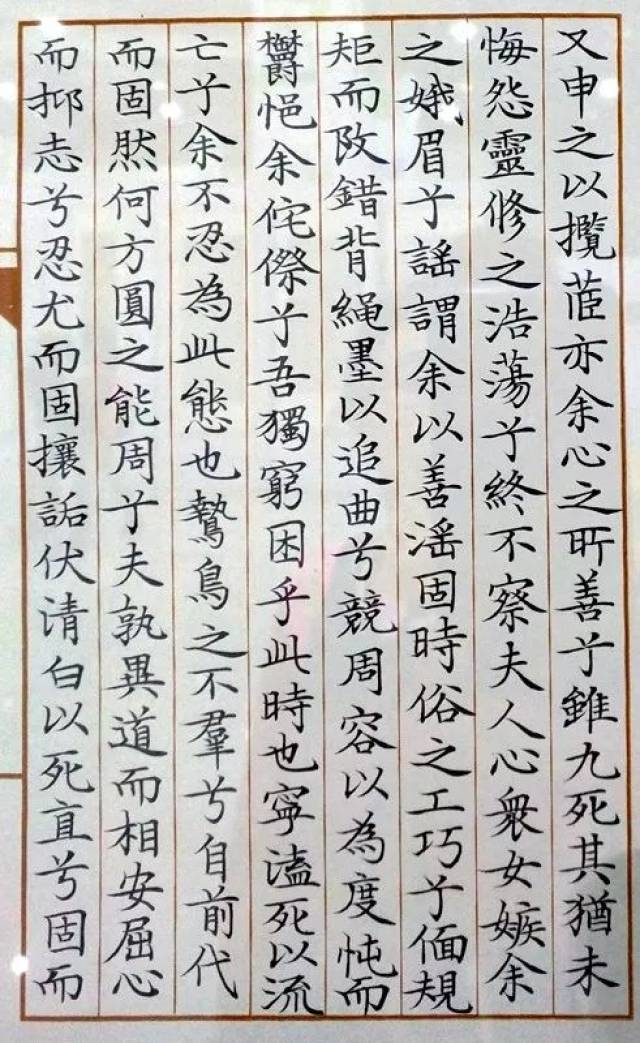 又申之以攬茝亦余心之所善兮雖九死其猶未
悔怨靈修之浩蕩兮終不察夫人心衆女嫉余
之娥眉兮謠謂余以善淫固時俗之工巧兮偭規
矩而改錯背繩墨以追曲兮競周容以為度忳而
鬱悒余侘傺兮吾獨窮困乎此時也寧溘死以流
亡兮余不忍為此態也鷙鳥之不羣兮自前代
而固然何方圓之能周兮夫孰異道而相安屈心
而抑志兮忍尤而固攘詬伏清白以死直兮固而